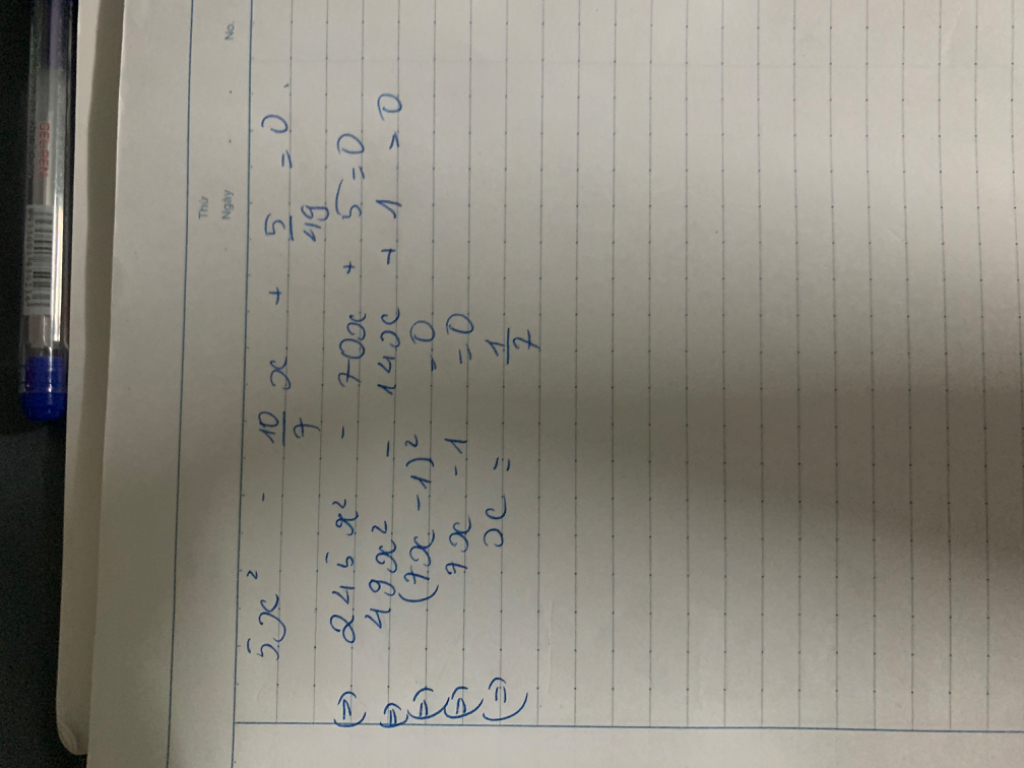 Thứ
Ngày
No.
5x² - 10/7 x + 5/49 = 0
(=) 245x² - 70x + 5 = 0
(=) 49x² - 14x + 1 = 0
(=) (7x - 1)² = 0
(=) 7x - 1 = 0
(=) x = 1/7